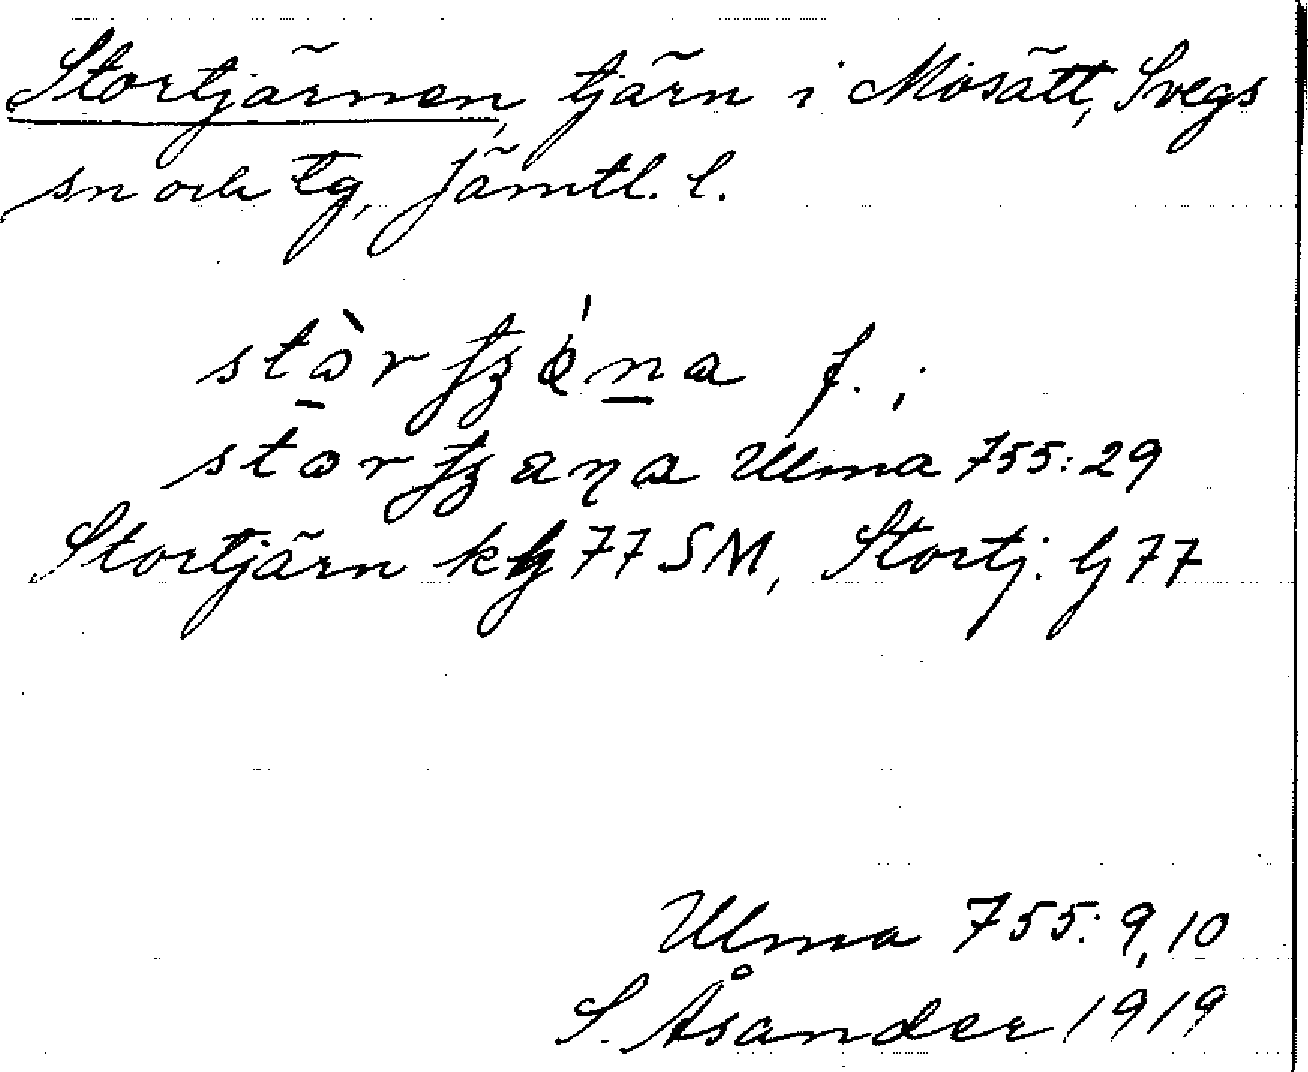 Stortjärnen, tjärn i Mosätt, Svegs
sn och tg, Jämtl. l.
f.;
Ulma 755:29
Stortjärn kg 77 SM, Stortj. G 77
Ulma 755:9,10
S. Åsander 1919